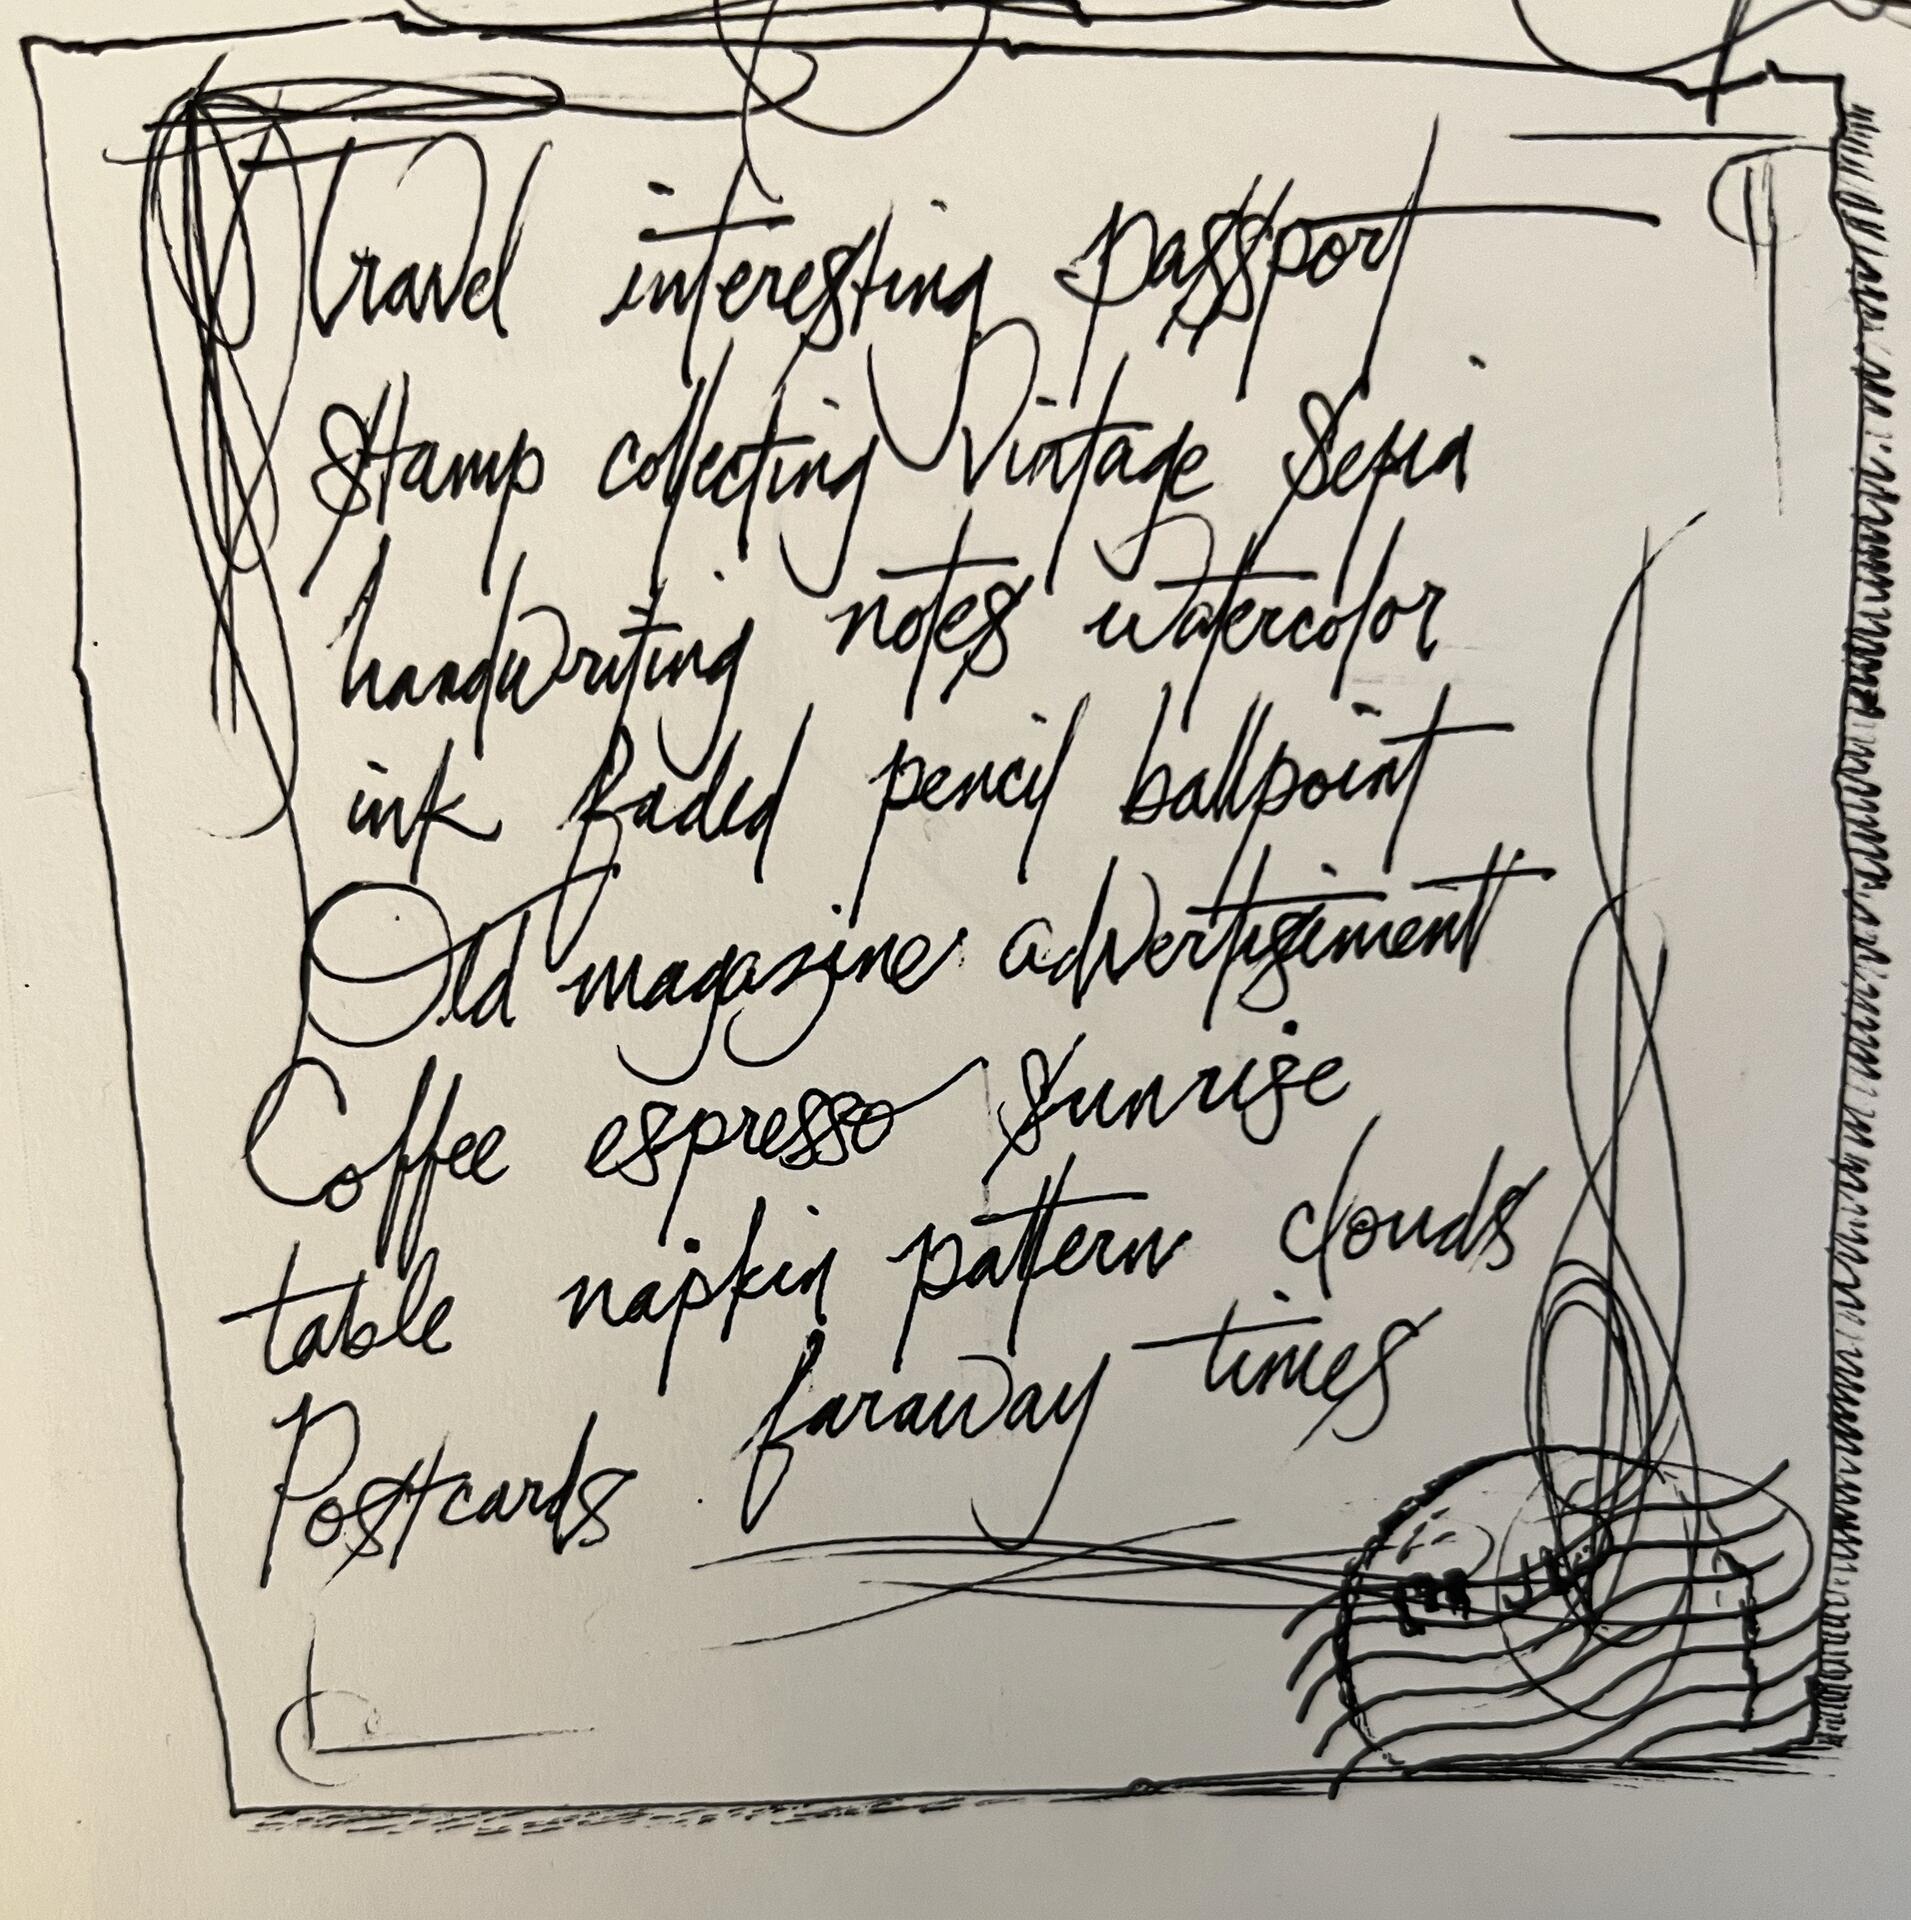 Travel interesting passport
Stamp collecting Vintage Sepia
handwriting notes watercolor
ink faded pencil ballpoint
Old magazine advertisiment
Coffee espresso Sunrise
table napkin pattern clouds
Postcards faraway times